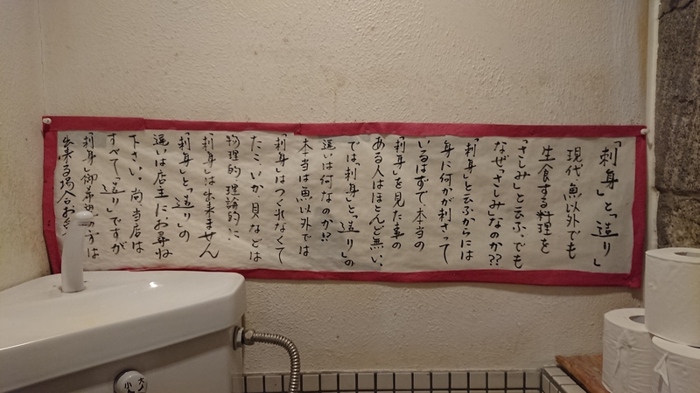 「刺身」と「造り」
現代、魚以外でも
生食する料理を
「さしみ」と云ふ、でも
なぜ「さしみ」なのか??
「刺身」と云ふからには
身に何かが刺さって
いるはずで、本当の
「刺身」を見た事の
ある人はほとんど無い、
では、「刺身」と「造り」の
違いは何なのか!?
本当は魚以外では
「刺身」はつくれなくて
たこ、いか、貝などは
物理的、理論的に
「刺身」は出来ません
「刺身」と「造り」の
違いは店主にお尋ね
下さい。尚、当店は
すべて「造り」ですが
「刺身」御希望の方は
出来る場合
大
小